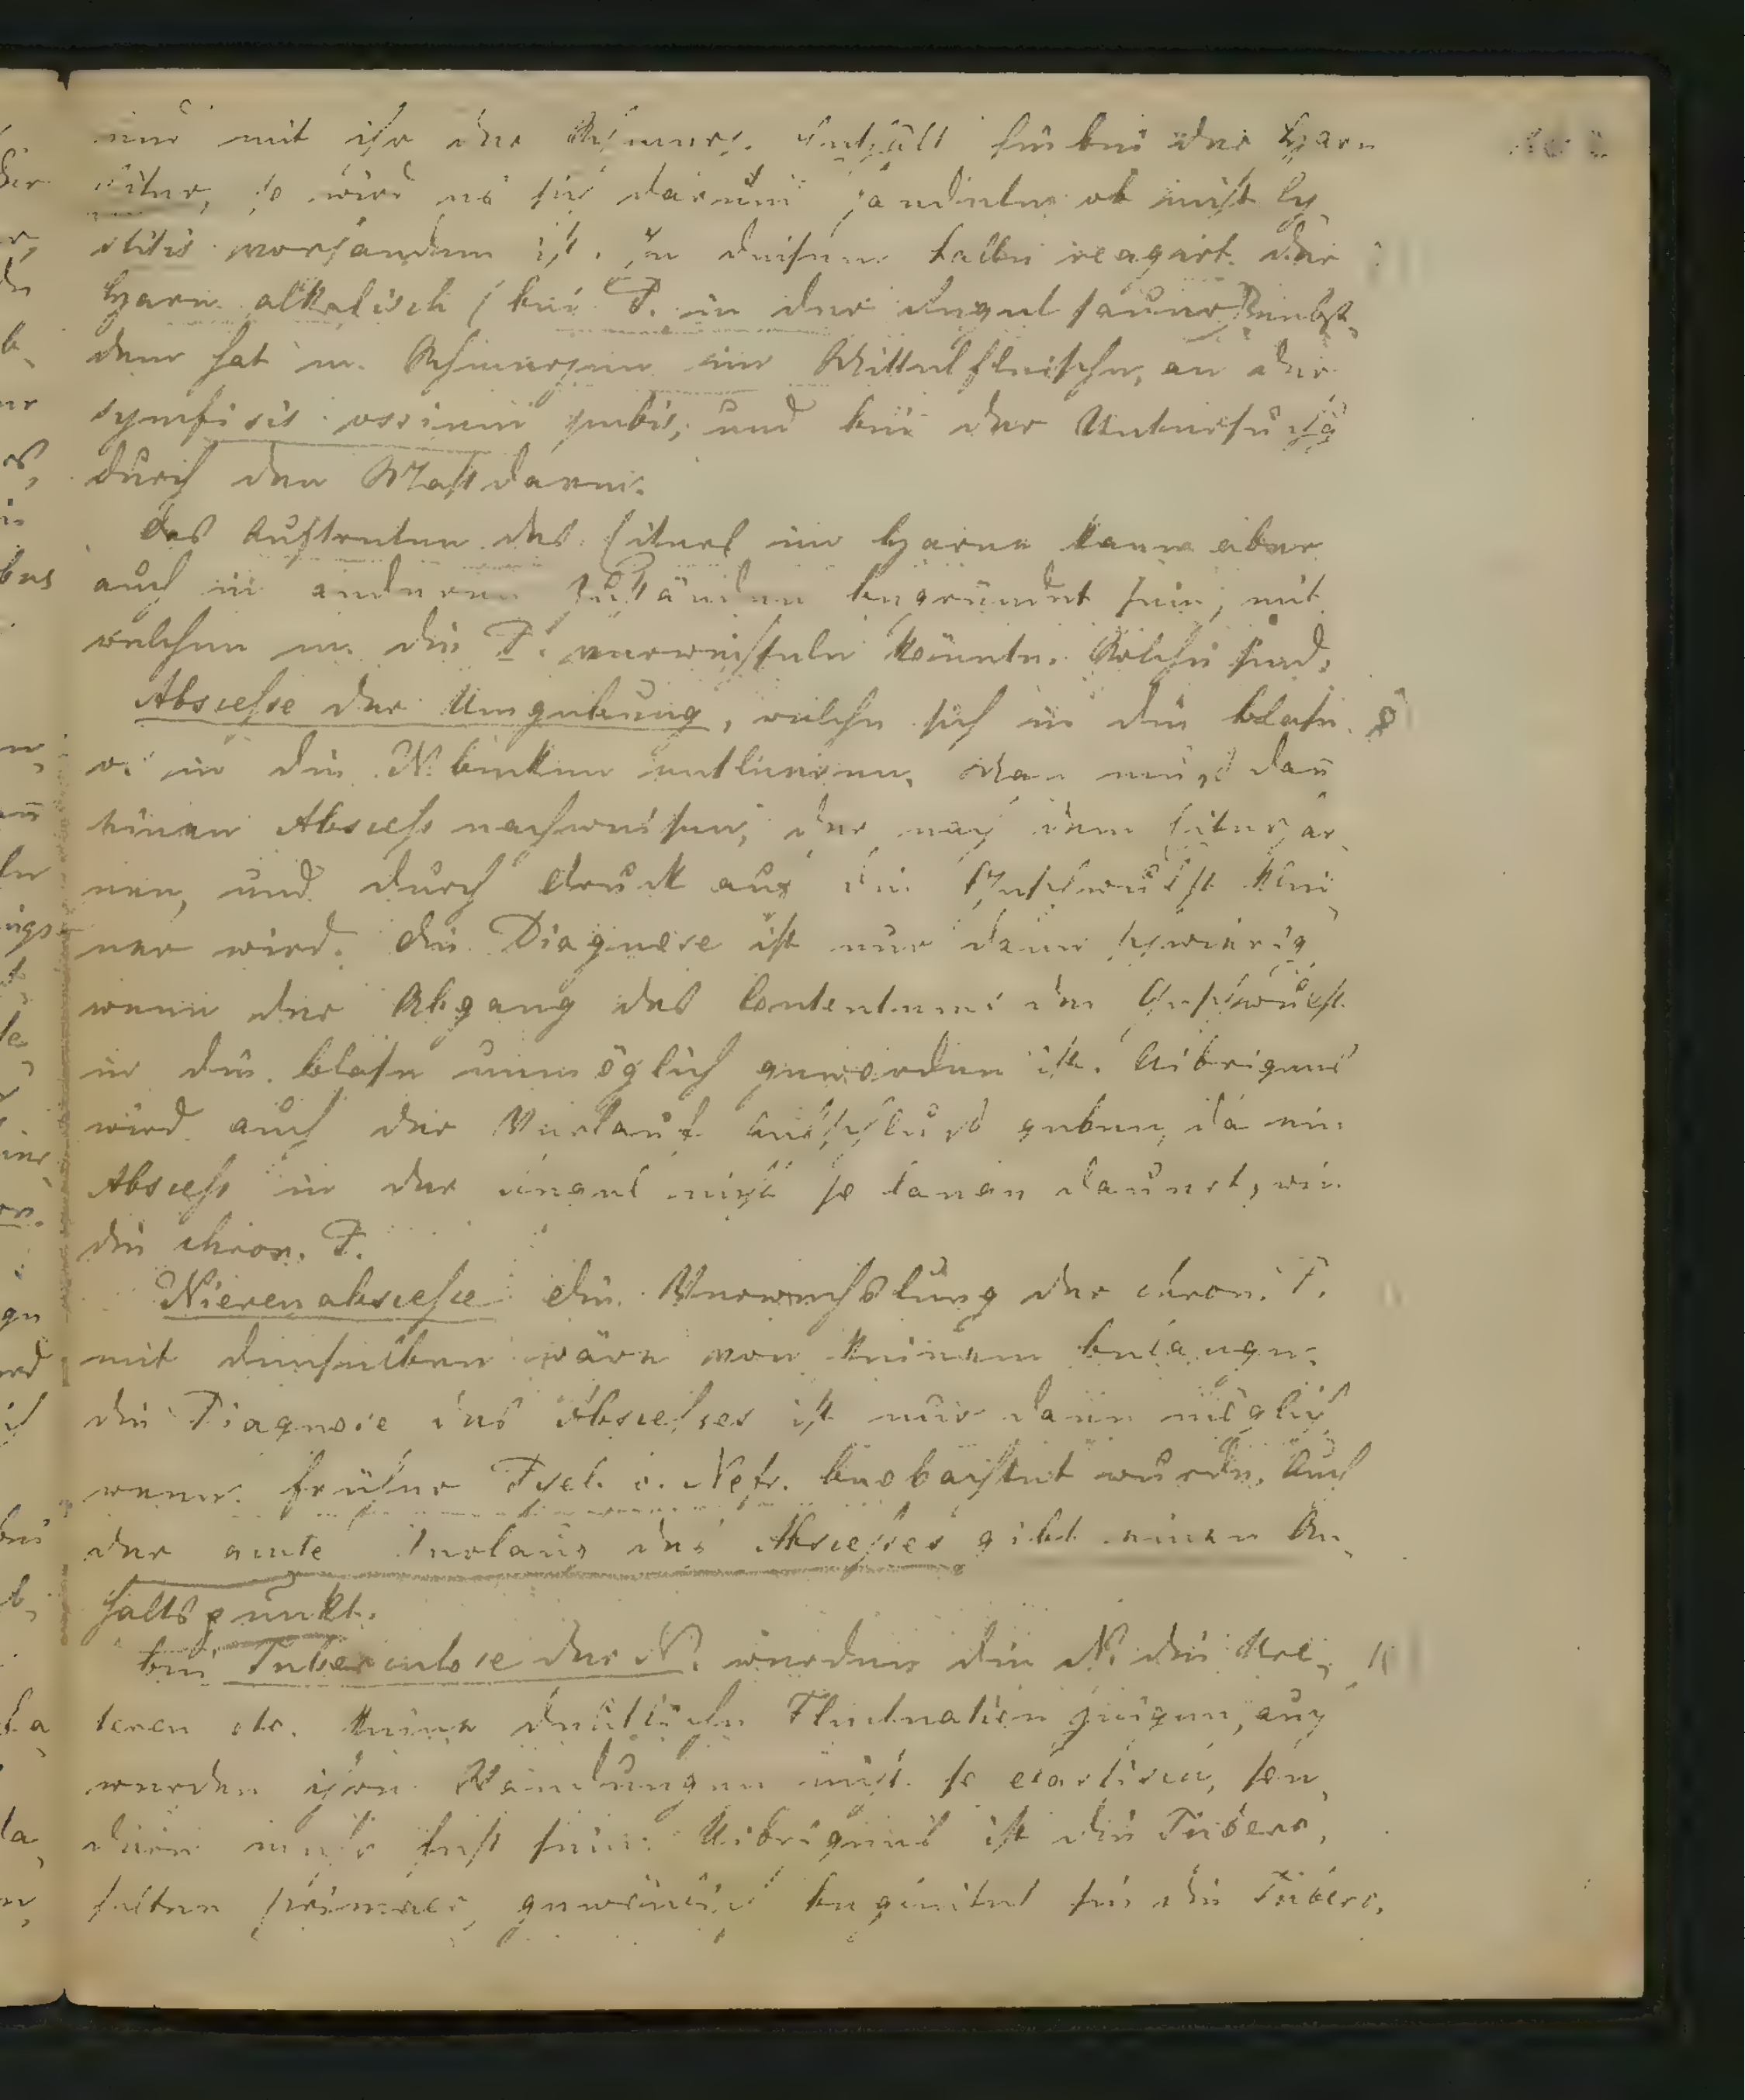 und mit ihr der Schmerz. Enthält hiebei der Harn
Eiter, so wird es sich darum handeln ob nicht Cy
stitis vorhanden ist. In diesem Falle reagirt der
Harn alkalisch (bei P. in der Regel sauer) Ninbst
dem hat m. Schmerzen im Mittelfleische, an der
symfisis ossium pubis, und bei der Untersuchg
durch den Mastdarm.
Das Auftreten des Eiters im Harne kann aber
auch in anderen Zuständen begründet sein, mit
welchen m. die P. verwechseln könnte. Solche sind,
Abscesse der Umgebung, welche sich in die Blase
o. in die N. becken entleeren. Man muß dan̄
einen Abscess nachweisen, der nach dem Eiterhar
nen, und durch Druck auf die Geschwulst klei
ner wird. Die Diagnose ist nur dann schwierig
wenn der Abgang des Contentums der Geschwulst
in die Blase unmöglich geworden ist. Uibrigens
wird auch der Verlauf Aufschluß geben, da ein
Abscess in der Regel nicht so lange dauert, wie
die chron. P.
Nierenabscesse Die Verwechslung der chron. P.
mit denselben wäre von keinem Belange.
Die Diagnose des Abscesses ist nur dann möglich
wenn früher Pyel. o. Nefr. beobachtet wurde. Auch
der acute Verlauf des Abscesses gibt einen An
haltspunkt.
Bei Tuberculose der N. werden die N. die Ure
teren etc. keine deutliche Fluctuation zeigen, auch
werden ihre Wandungen nicht so elastisch, son
dern mehr fest sein. Uibrigens ist die Tuberc.
selten primaer, gewöhnlich begleitet sie die Tuberc.